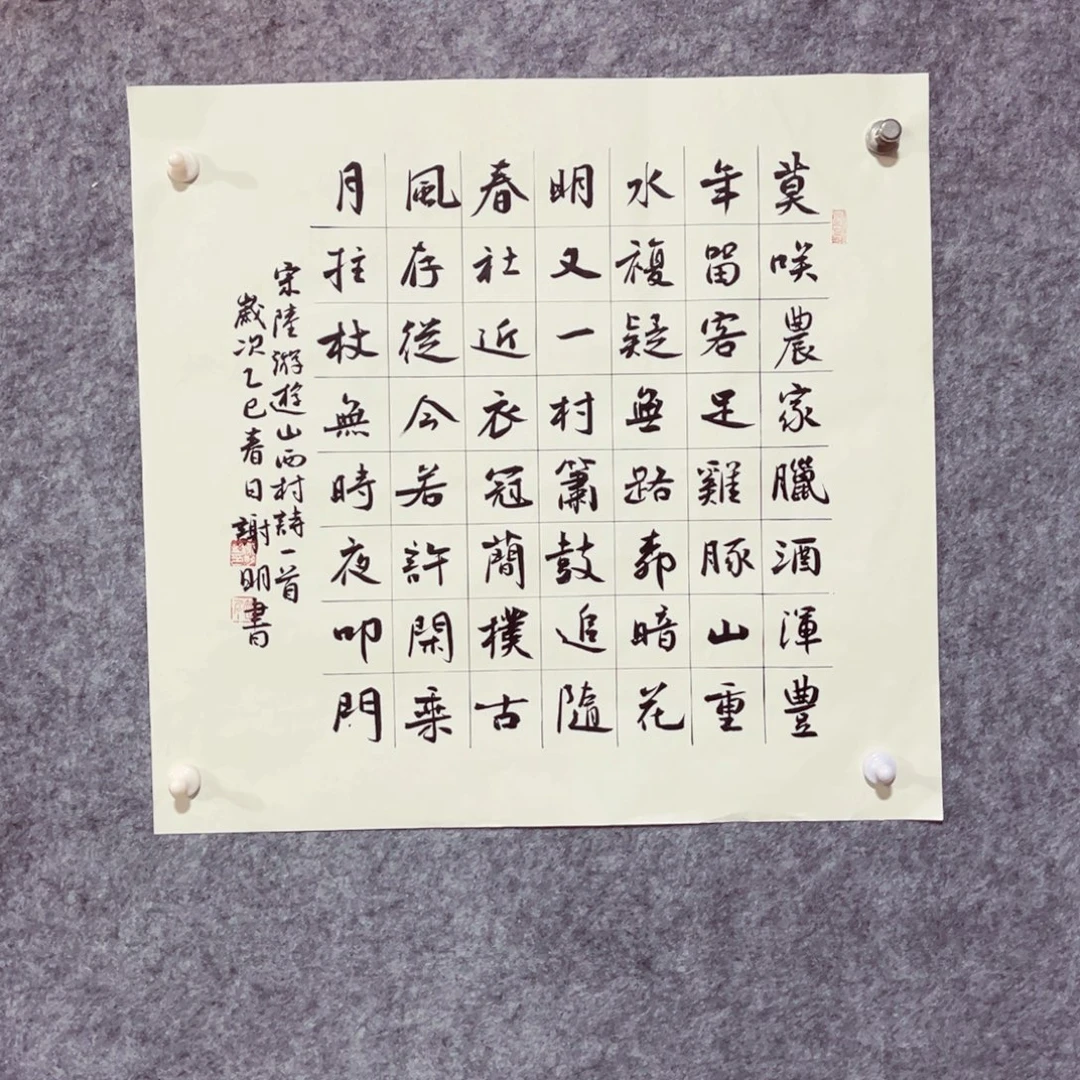 莫咲農家臘酒渾豐
年留客足雞豚山重
水複疑無路柳暗花
明又一村簫鼓追隨
春社近衣冠簡樸古
風存從今若許閑乘
月拄杖無時夜叩門
宋陸游遊山西村詩一首
歲次乙巳春日謝明書